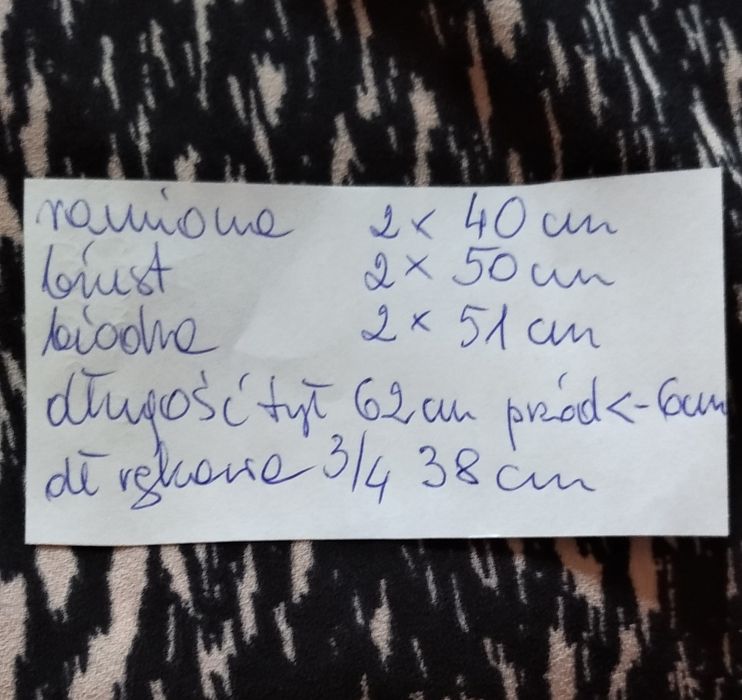 ramiona 2 x 40 cm
biust 2 x 50 cm
biodra 2 x 51 cm
długość tył 62 cm przód <- 6cm
dł rękawa 3/4 38 cm